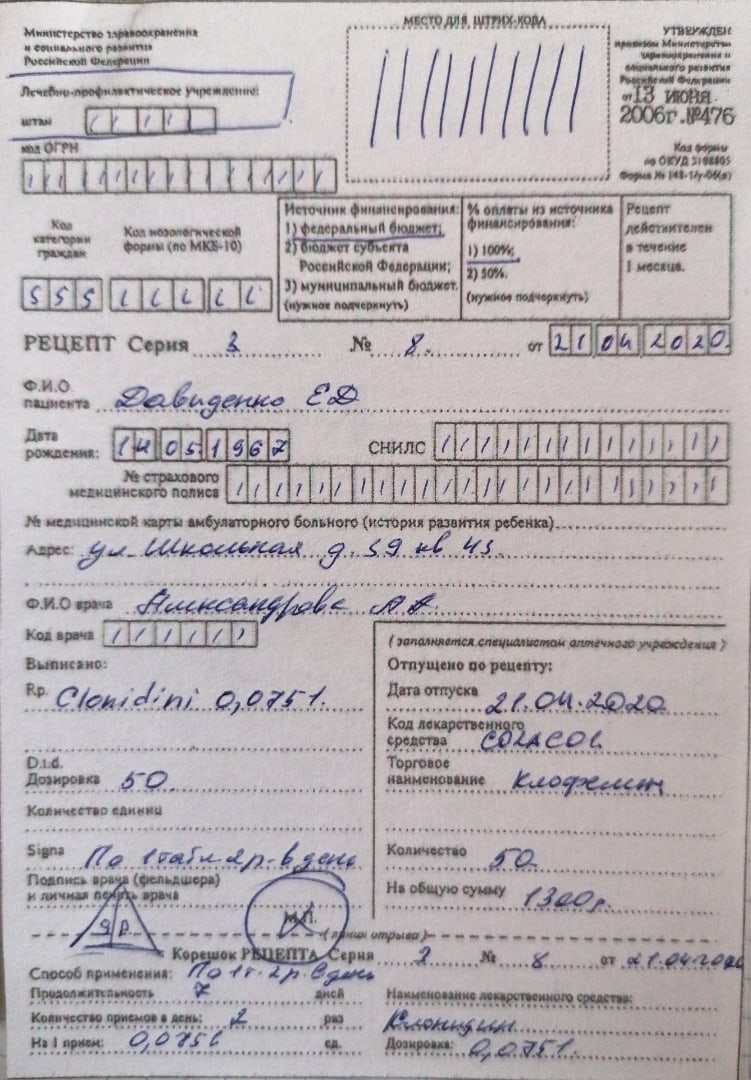 Министерство здравоохранения
и социального развития
Российской Федерации
МЕСТО ДЛЯ ШТРИХ-КОДА
УТВЕРЖДЕН
приказом Министерства
здравоохранения и
социального развития
Российской Федерации
от 13 ИЮНЯ
2006г. №476
Лечебно-профилактическое учреждение:
штамп
код ОГРН
Код формы
по ОКУД 3108805
Форма № 148-1/у-06(л)
Код
категории
граждан
555
Код нозологической
формы (по МКБ-10)
Источник финансирования:
1) федеральный бюджет;
2) бюджет субъекта
Российской Федерации;
3) муниципальный бюджет.
(нужное подчеркнуть)
% оплаты из источника
финансирования:
1) 100%;
2) 50%.
(нужное подчеркнуть)
Рецепт
действителен
в течение
1 месяца.
РЕЦЕПТ Серия 3 № 8. от 21 04 2020.
Ф.И.О
пациента Давиденко ЕД
Дата
рождения: 14 05 1967
СНИЛС
№ страхового
медицинского полиса
№ медицинской карты амбулаторного больного (история развития ребенка)
Адрес: ул. Школьная д. 59 кв 43.
Ф.И.О врача Александрова АА
Код врача
Выписано:
Rp. Clonidini 0,0751.
D.t.d.
Дозировка 50
Количество единиц
Signa По 1 табл 2р. в день
Подпись врача (фельдшера)
и личная печать врача
ЯР
М.П.
(заполняется специалистом аптечного учреждения)
Отпущено по рецепту:
Дата отпуска 21.04.2020
Код лекарственного
средства C02AC01.
Торговое
наименование Клофелин
Количество 50
На общую сумму 1300р.
(линия отрыва)
Корешок РЕЦЕПТА Серия 3 № 8 от 21.04.2020
Способ применения: По 1т. 2р. в день
Продолжительность 7 дней
Количество приемов в день: 2 раз
На 1 прием: 0,0751 ед.
Наименование лекарственного средства:
Клонидин
Дозировка: 0,0751.